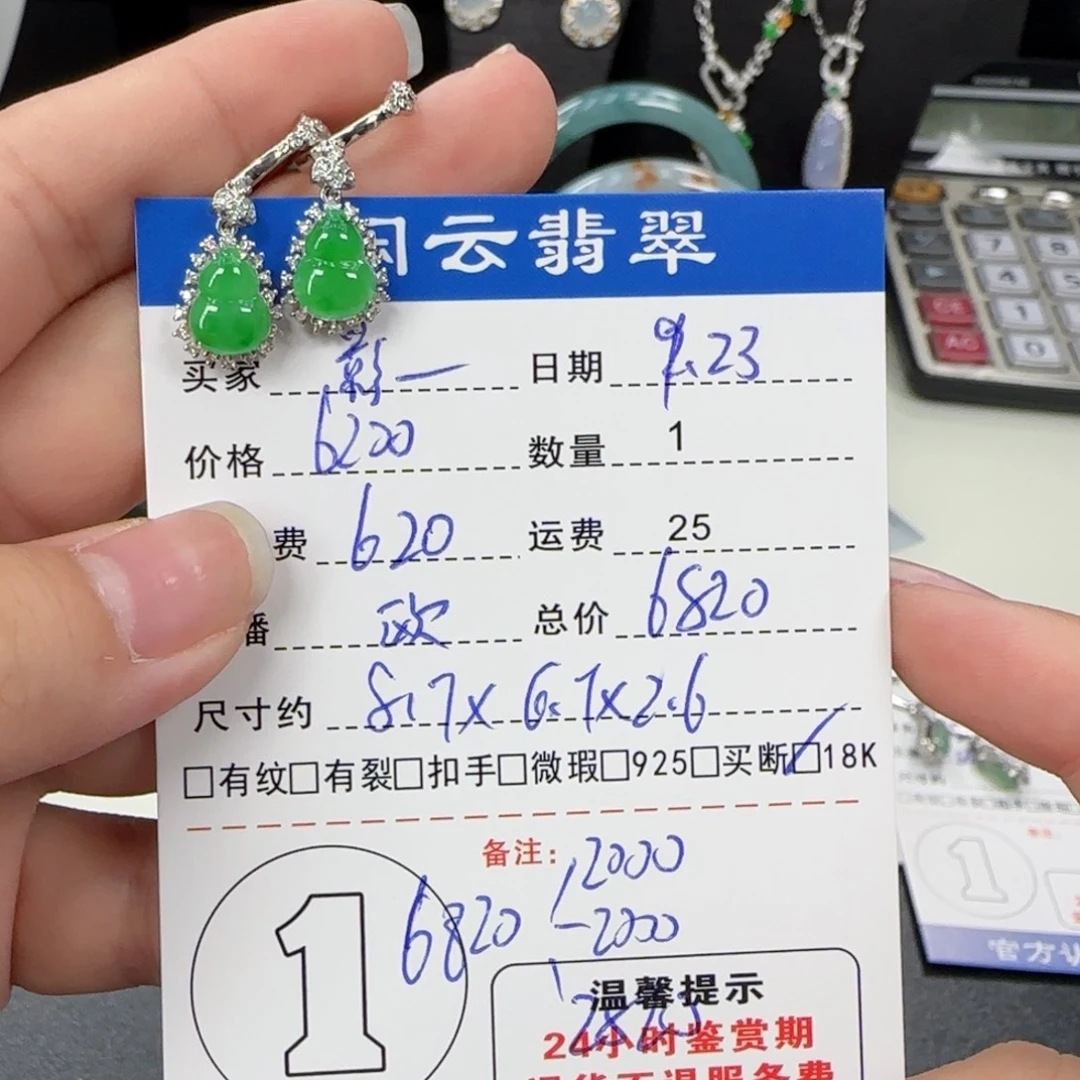 闲云翡翠
买家 彭一 日期 9.23
价格 6200 数量 1
费 620 运费 25
播 欧 总价 6820
尺寸约 8.7x6.7x2.6
□有纹□有裂□扣手□微瑕□925□买断□18K
备注: 2000
6820 -2000
1
温馨提示
24小时鉴赏期
7 8
4 5
1
CE
AC
1
官方认